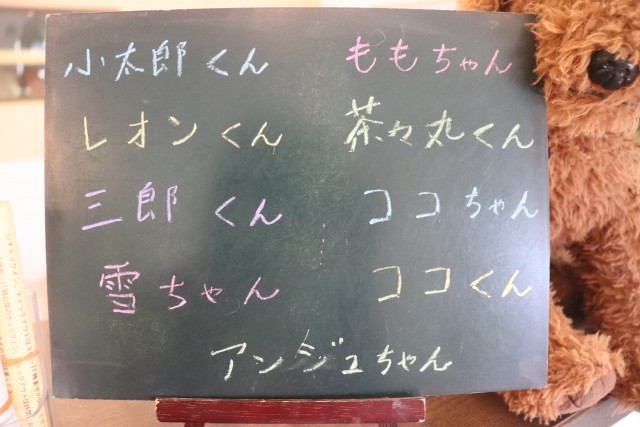 小太郎くん ももちゃん
レオンくん 茶々丸くん
三郎くん ココちゃん
雪ちゃん ココくん
アンジュちゃん